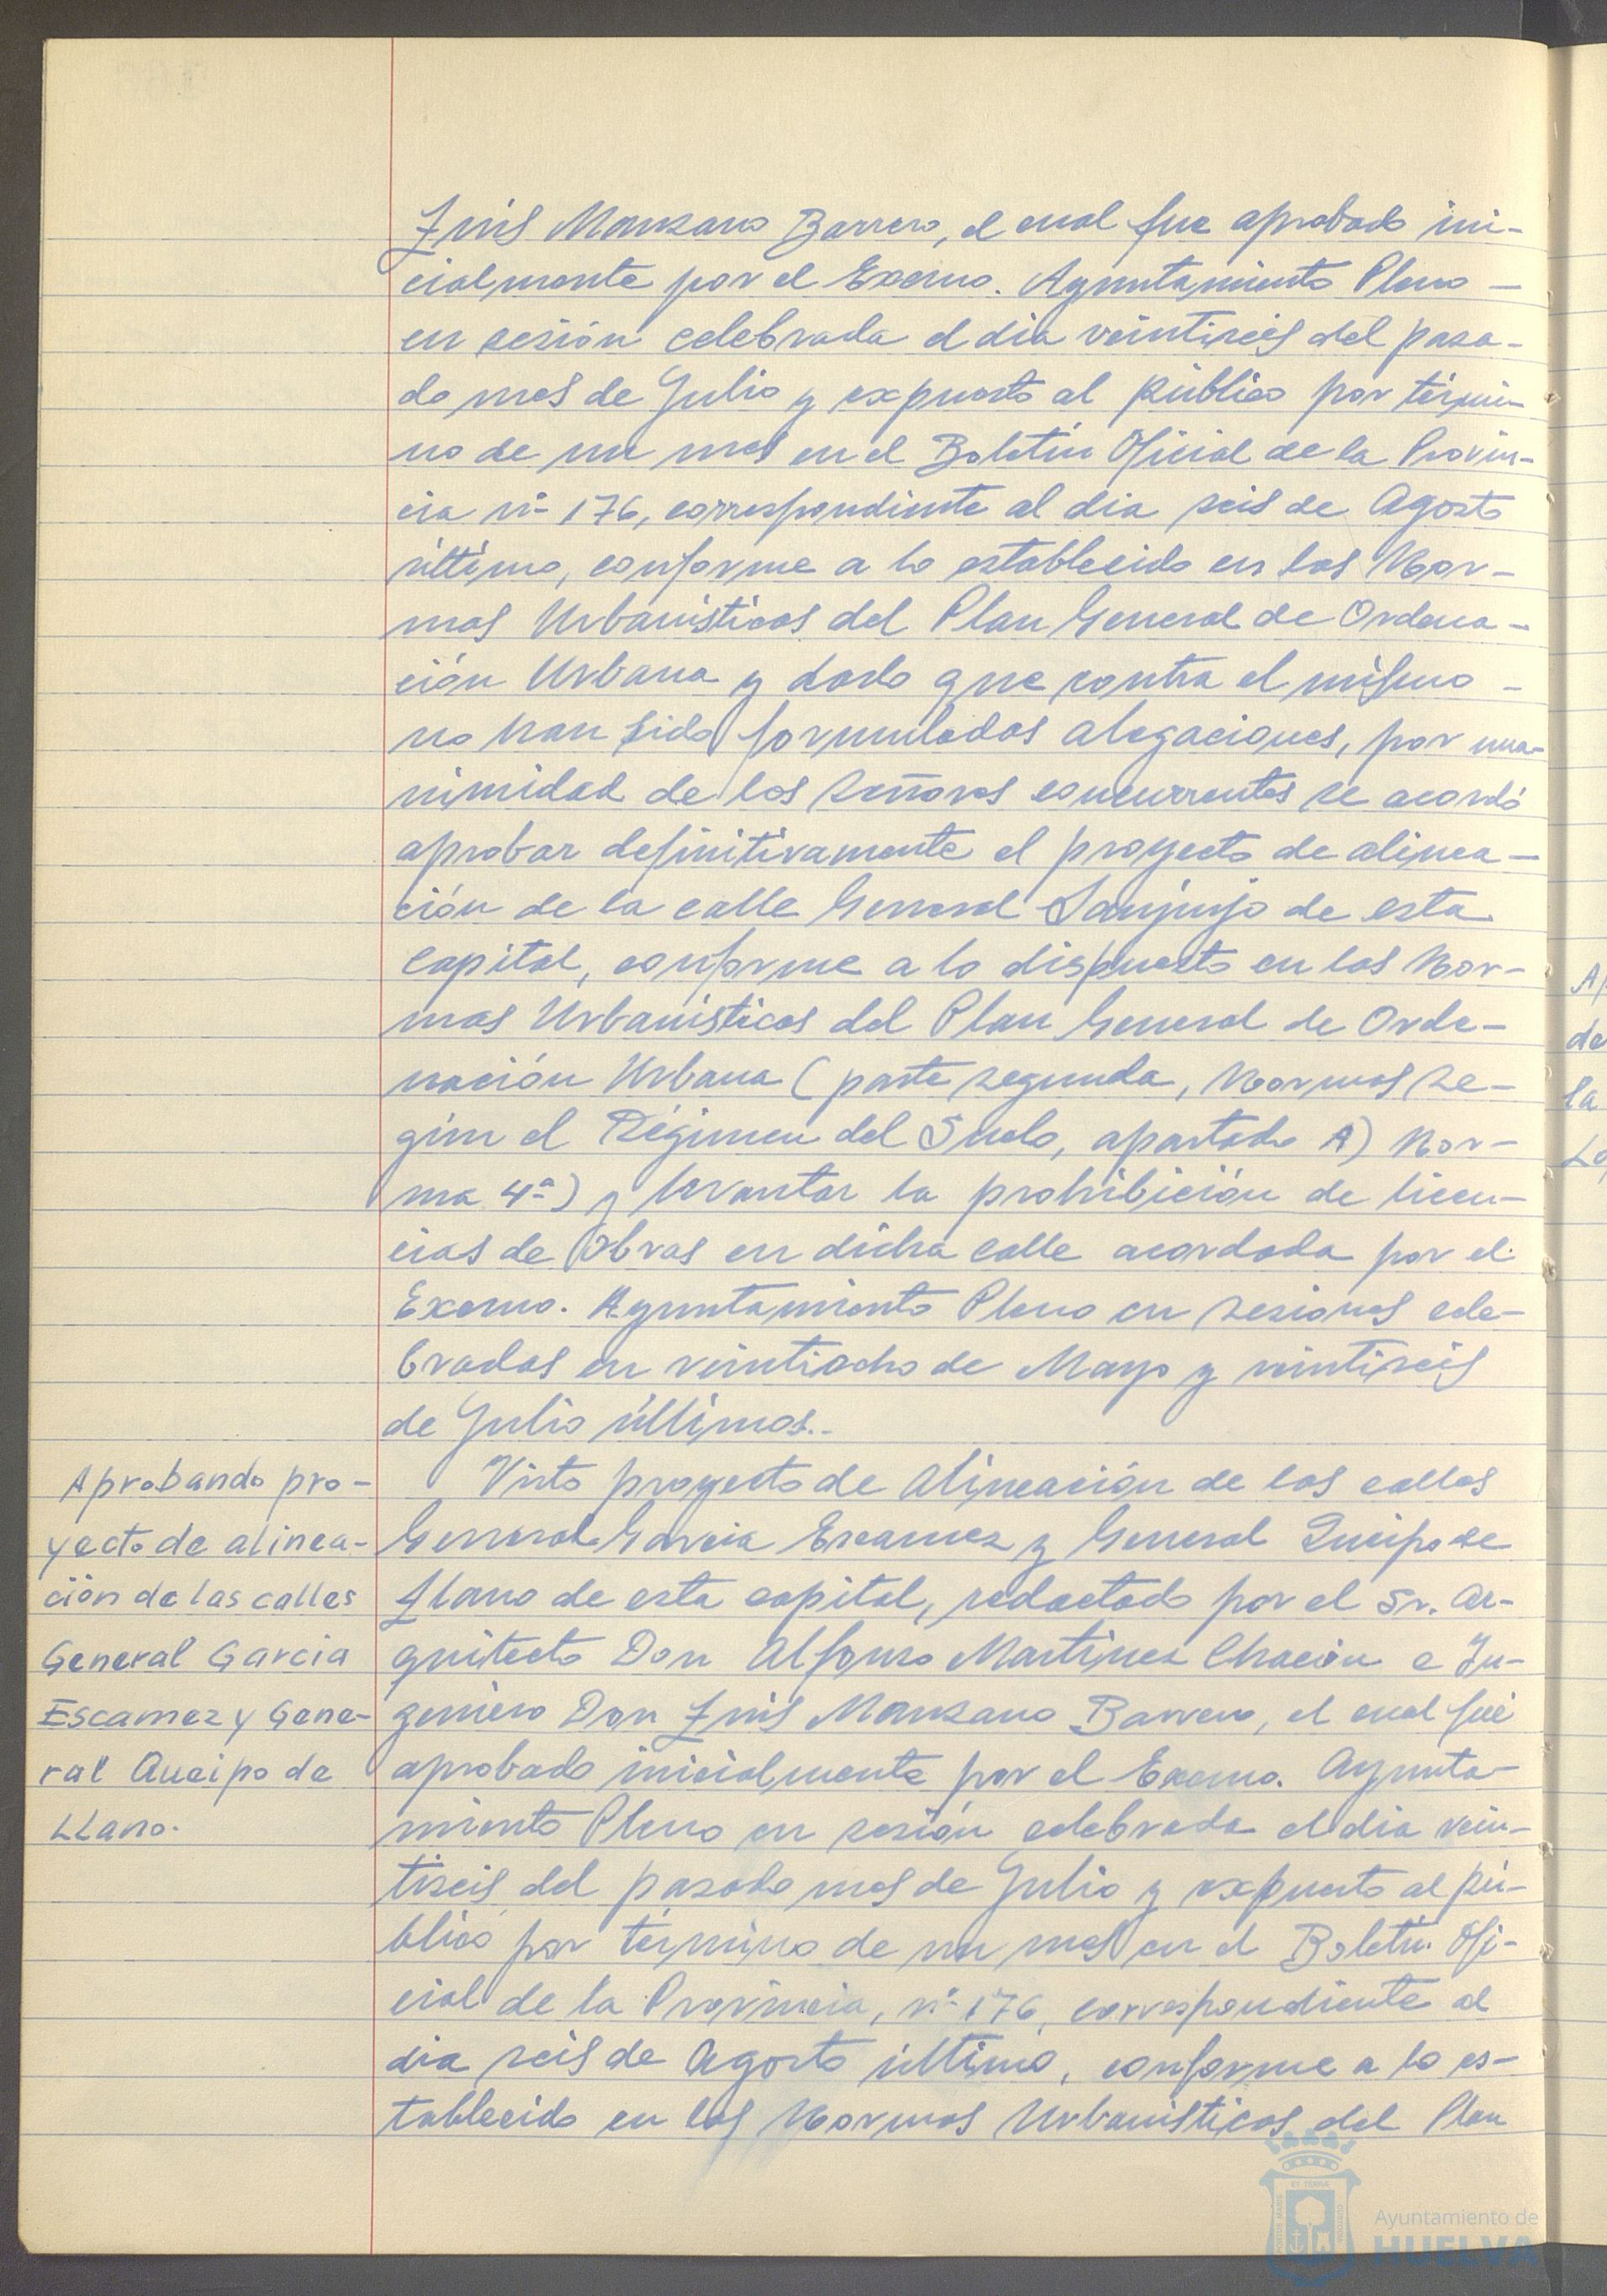 Luis Manzano Barrero, el cual fue aprobado ini-
cialmente por el Excmo. Ayuntamiento Pleno -
en sesión celebrada el dia veintiseis del pasa-
do mes de Julio y expuesto al público por térmi-
no de un mes en el Boletín Oficial de la Provin-
cia nº 176, correspondiente al dia seis de Agosto
último, conforme a lo establecido en las Nor-
mas Urbanísticas del Plan General de Ordena-
ción Urbana y dado que contra el mismo -
no han sido formuladas alegaciones, por una-
nimidad de los señores concurrentes se acordó
aprobar definitivamente el proyecto de alinea-
ción de la calle General Sanjurjo de esta
capital, conforme a lo dispuesto en las Nor-
mas Urbanísticas del Plan General de Orde-
nación Urbana (parte segunda, Normas se-
gún el Régimen del Suelo, apartado A) Nor-
ma 4ª) y levantar la prohibición de licen-
cias de Obras en dicha calle acordada por el
Excmo. Ayuntamiento Pleno en sesiones cele-
bradas en veintiocho de Mayo y veintiseis
de Julio últimos.-
Aprobando pro-
yecto de alinea-
ción de las calles
General Garcia
Escamez y Gene-
ral Queipo de
LLano.
Visto proyecto de Alineación de las calles
General Garcia Escamez y General Queipo de
Llano de esta capital, redactado por el Sr. Ar-
quitecto Don Alfonso Martinez Chacón e In-
geniero Don Luis Manzano Barrero, el cual fué
aprobado inicialmente por el Excmo. Ayunta-
miento Pleno en sesión celebrada el dia vein-
tiseis del pasado mes de Julio y expuesto al pú-
blico por término de un mes en el Boletín Ofi-
cial de la Provincia, nº 176, correspondiente al
dia seis de Agosto último, conforme a lo es-
tablecido en las Normas Urbanísticas del Plan
Ayuntamiento de
HUELVA